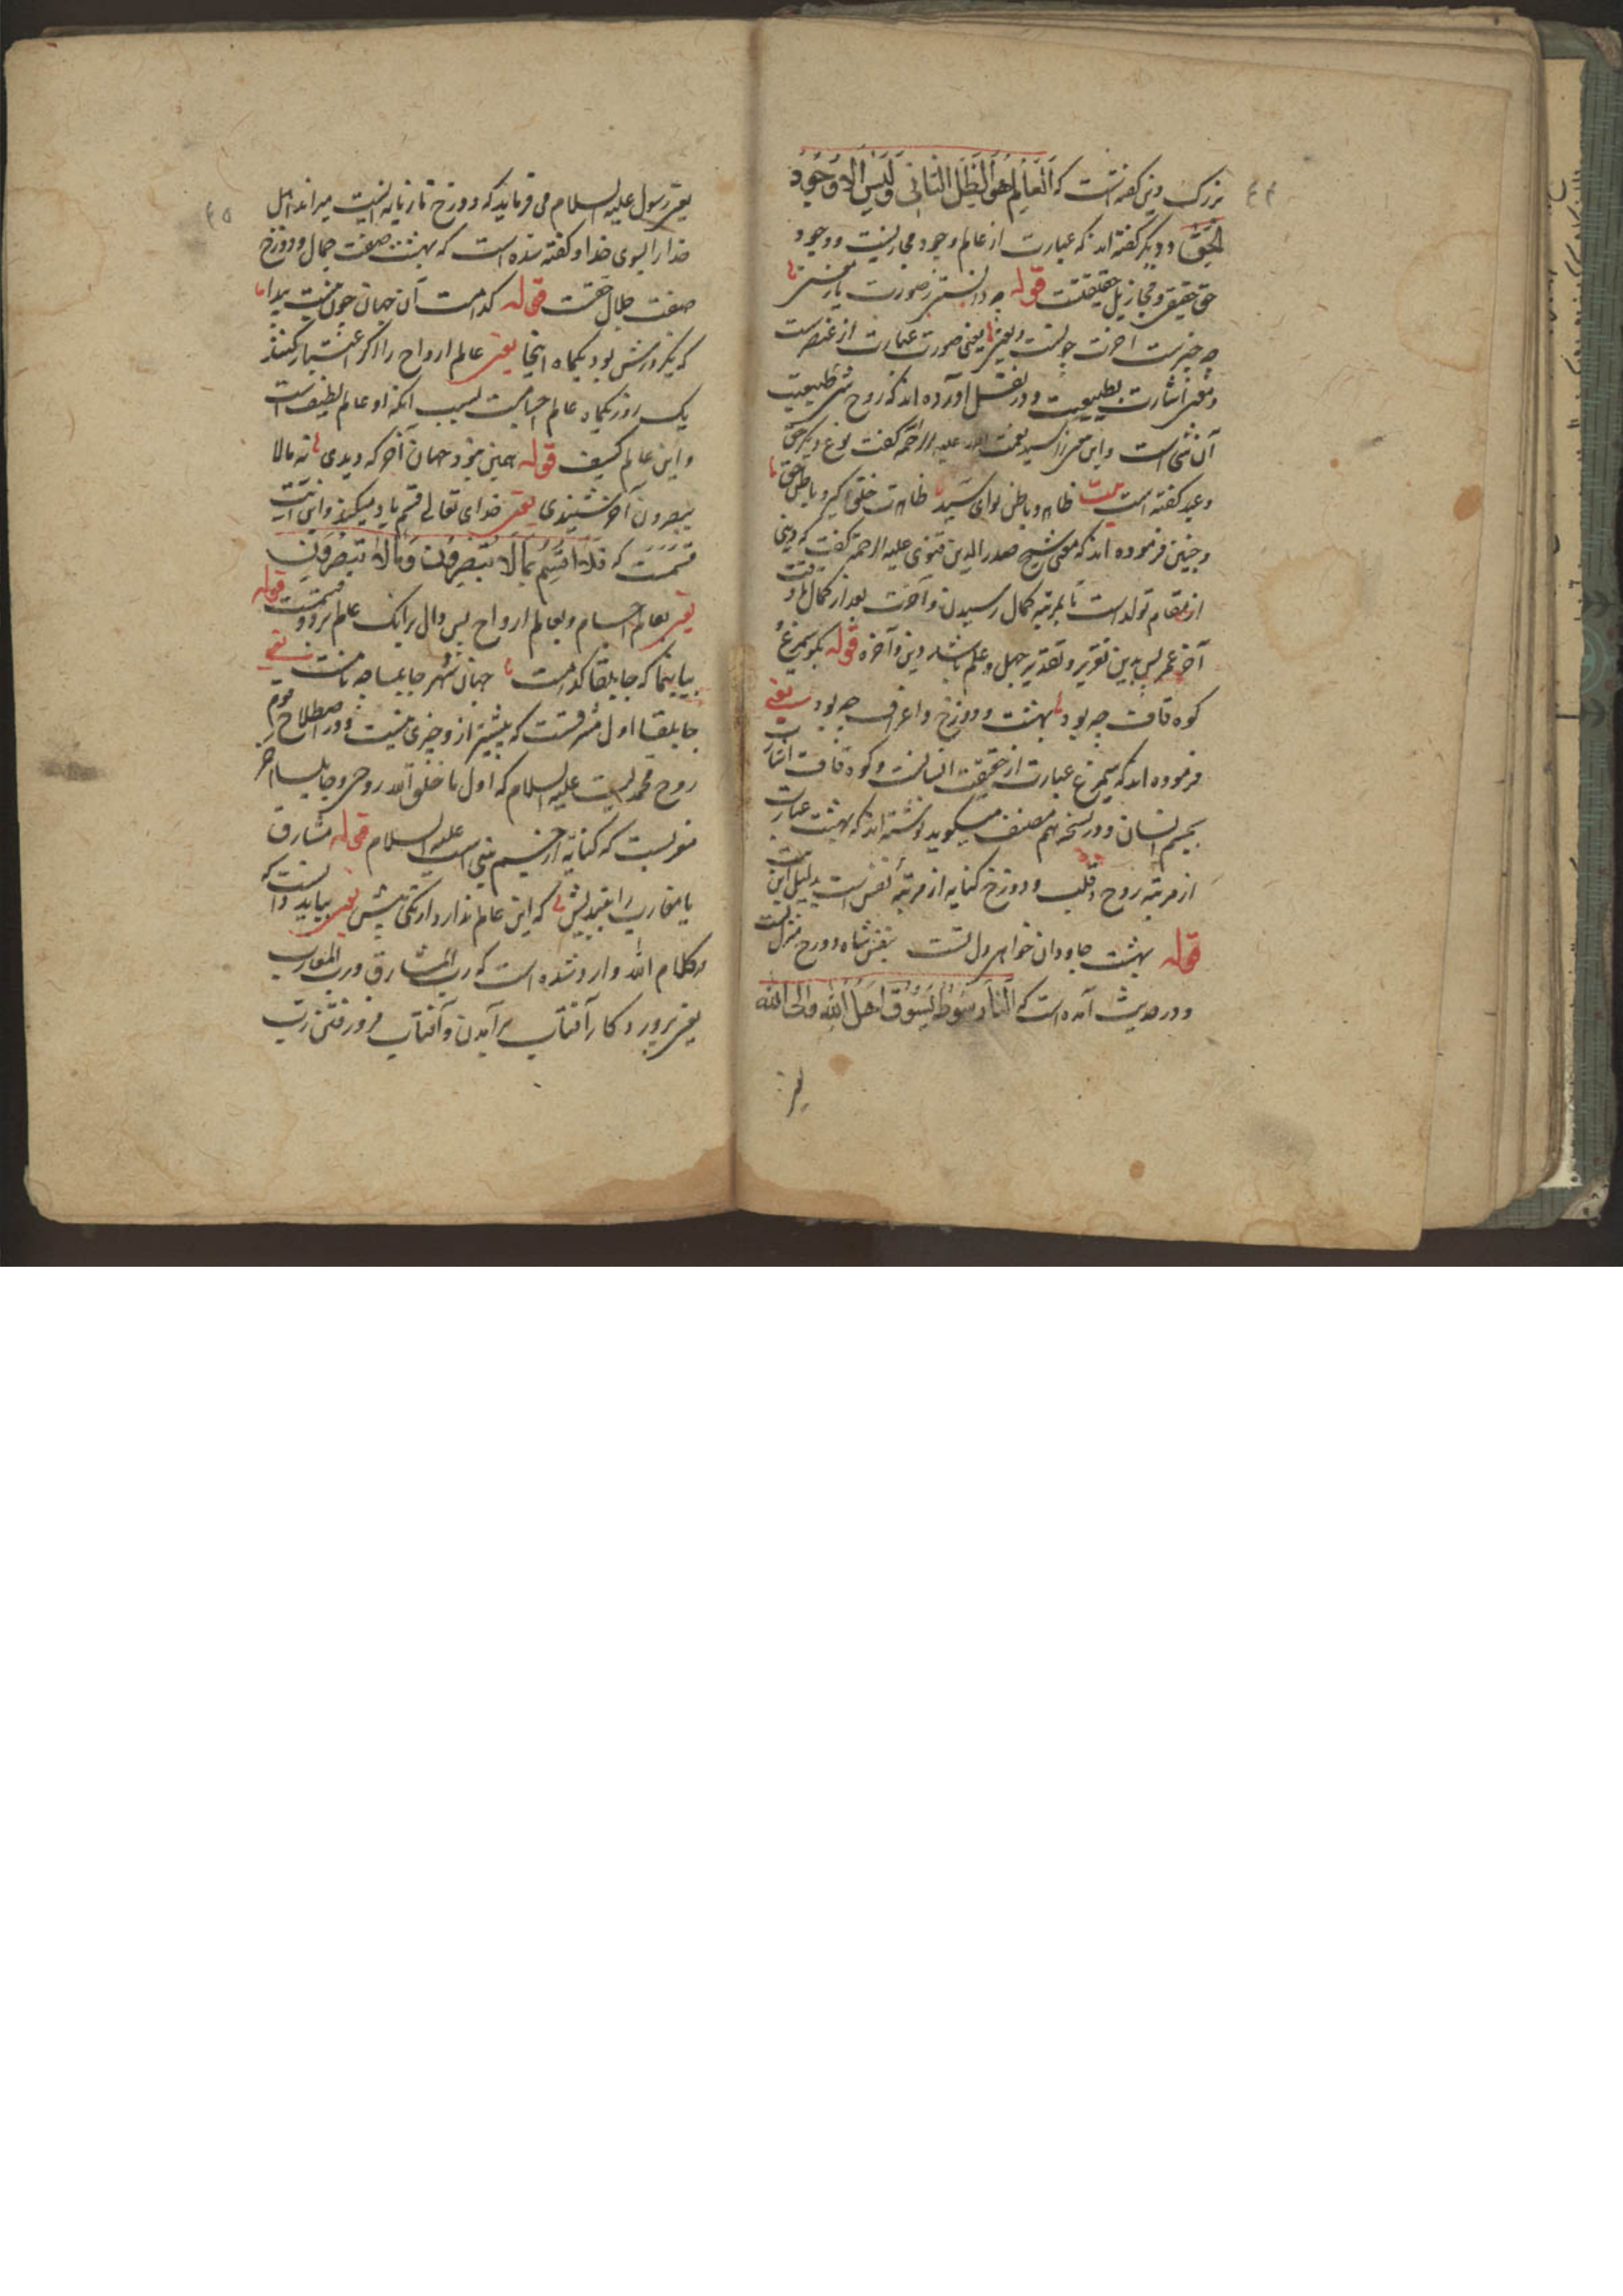 ۴۴
بزرک دین کفته است که اَلعَالَمُ هُوَ الظِّلُّ الثَّانِی وَلَیسَ اِلَّا وُجُودُ
الحَقِّ و دیکر کفته اند که عبارت از عالم وجود مجازیست و وجود
حق حقیقی و مجاز پل حقیقتست قوله چه دانستی ز صورت یا ز معنی
چه چیزست آخرت چونست دنیی یعنی صورت عبارت از عنصرست
و معنی اشارت بطبیعت و در نقل آورده اند که روح شی طبیعت
آن شی است و این سید نعمت الله علیه الرحمه کفت نوع دیکر حق
و عبد کفته است بیت ظاهر و باطن توای سید ظاهرت خلق کیر و باطن حق
و چنین فرموده اند که شیخ صدر الدین قنوی علیه الرحمه کفت که دنیی
از مقام تولد است تا بمرتبه کمال رسیدن و آخرت بعد از کمال تا وقت
آخر عمر پس بدین تقریر و تقدیر جهل و علم باشد دنیی و آخره قوله بکو سیمرغ
کوه قاف چه بود بهشت و دوزخ و اعراف چه بود یعنی
فرموده اند که سیمرغ عبارت از حقیقت انسانست و کوه قاف اشارت
بجسم انسان و در نسخه هم مصنف میکوید نوشته اند که بهشت عبارت
از مرتبه روح و قلب و دوزخ کنایه از مرتبه نفس است بدلیل این بیت
قوله بهشت جاودان خواهی دل تست بنفس شاه دوزخ منزل تست
و در حدیث آمده است که اَلنَّارُ سَوطٌ یَسُوقُ اَهلَ اللهِ اِلَی الله
یعنی
۴۵
یعنی رسول علیه السلام می فرماید که دوزخ تازیانه ایست میراند اهل
خدا را بسوی خدا و کفته شده است که بهشت صفت جمال و دوزخ
صفت جلال حقست قوله کدامست آن جهان چون نیست پیدا
که یکروزش بود یکماه اینجا یعنی عالم ارواح را اکر اعتبار کنند
یک روز یکماه عالم اجسامست بسبب آنکه او عالم لطیف است
و این عالم کثیف قوله همین نبود جهان آخر که دیدی نه مالا
یبصرون آخر شنیدی یعنی خدای تعالی قسم یاد میکند و این آیت
قسمست که فَلَا اُقسِمُ بِمَا لَا تُبصِرُونَ وَمَا لَا تُبصِرُونَ
یعنی بعالم اجسام و بعالم ارواح پس دال برانک عالم بر دو قسمست قوله
بیا بنما که جابلقا کدامست جهان شهر جابلسا چه نامست یعنی
جابلقا اول مشرقست که بیشتر از و چیزی نیست و در اصطلاح قوم
روح محمدیست علیه السلام که اول ما خلق الله روحی و جابلسا آخر
مغربست که کنایه از جسم نبی است علیه السلام قوله مشارق
با مغارب را بیندیش که این عالم ندارد از یکی بیش یعنی بباید دانست که
در کلام الله وارد شده است که رب المشارق و رب المغارب
یعنی پرورد کار آفتاب برآمدن و آفتاب فرو رفتن رب